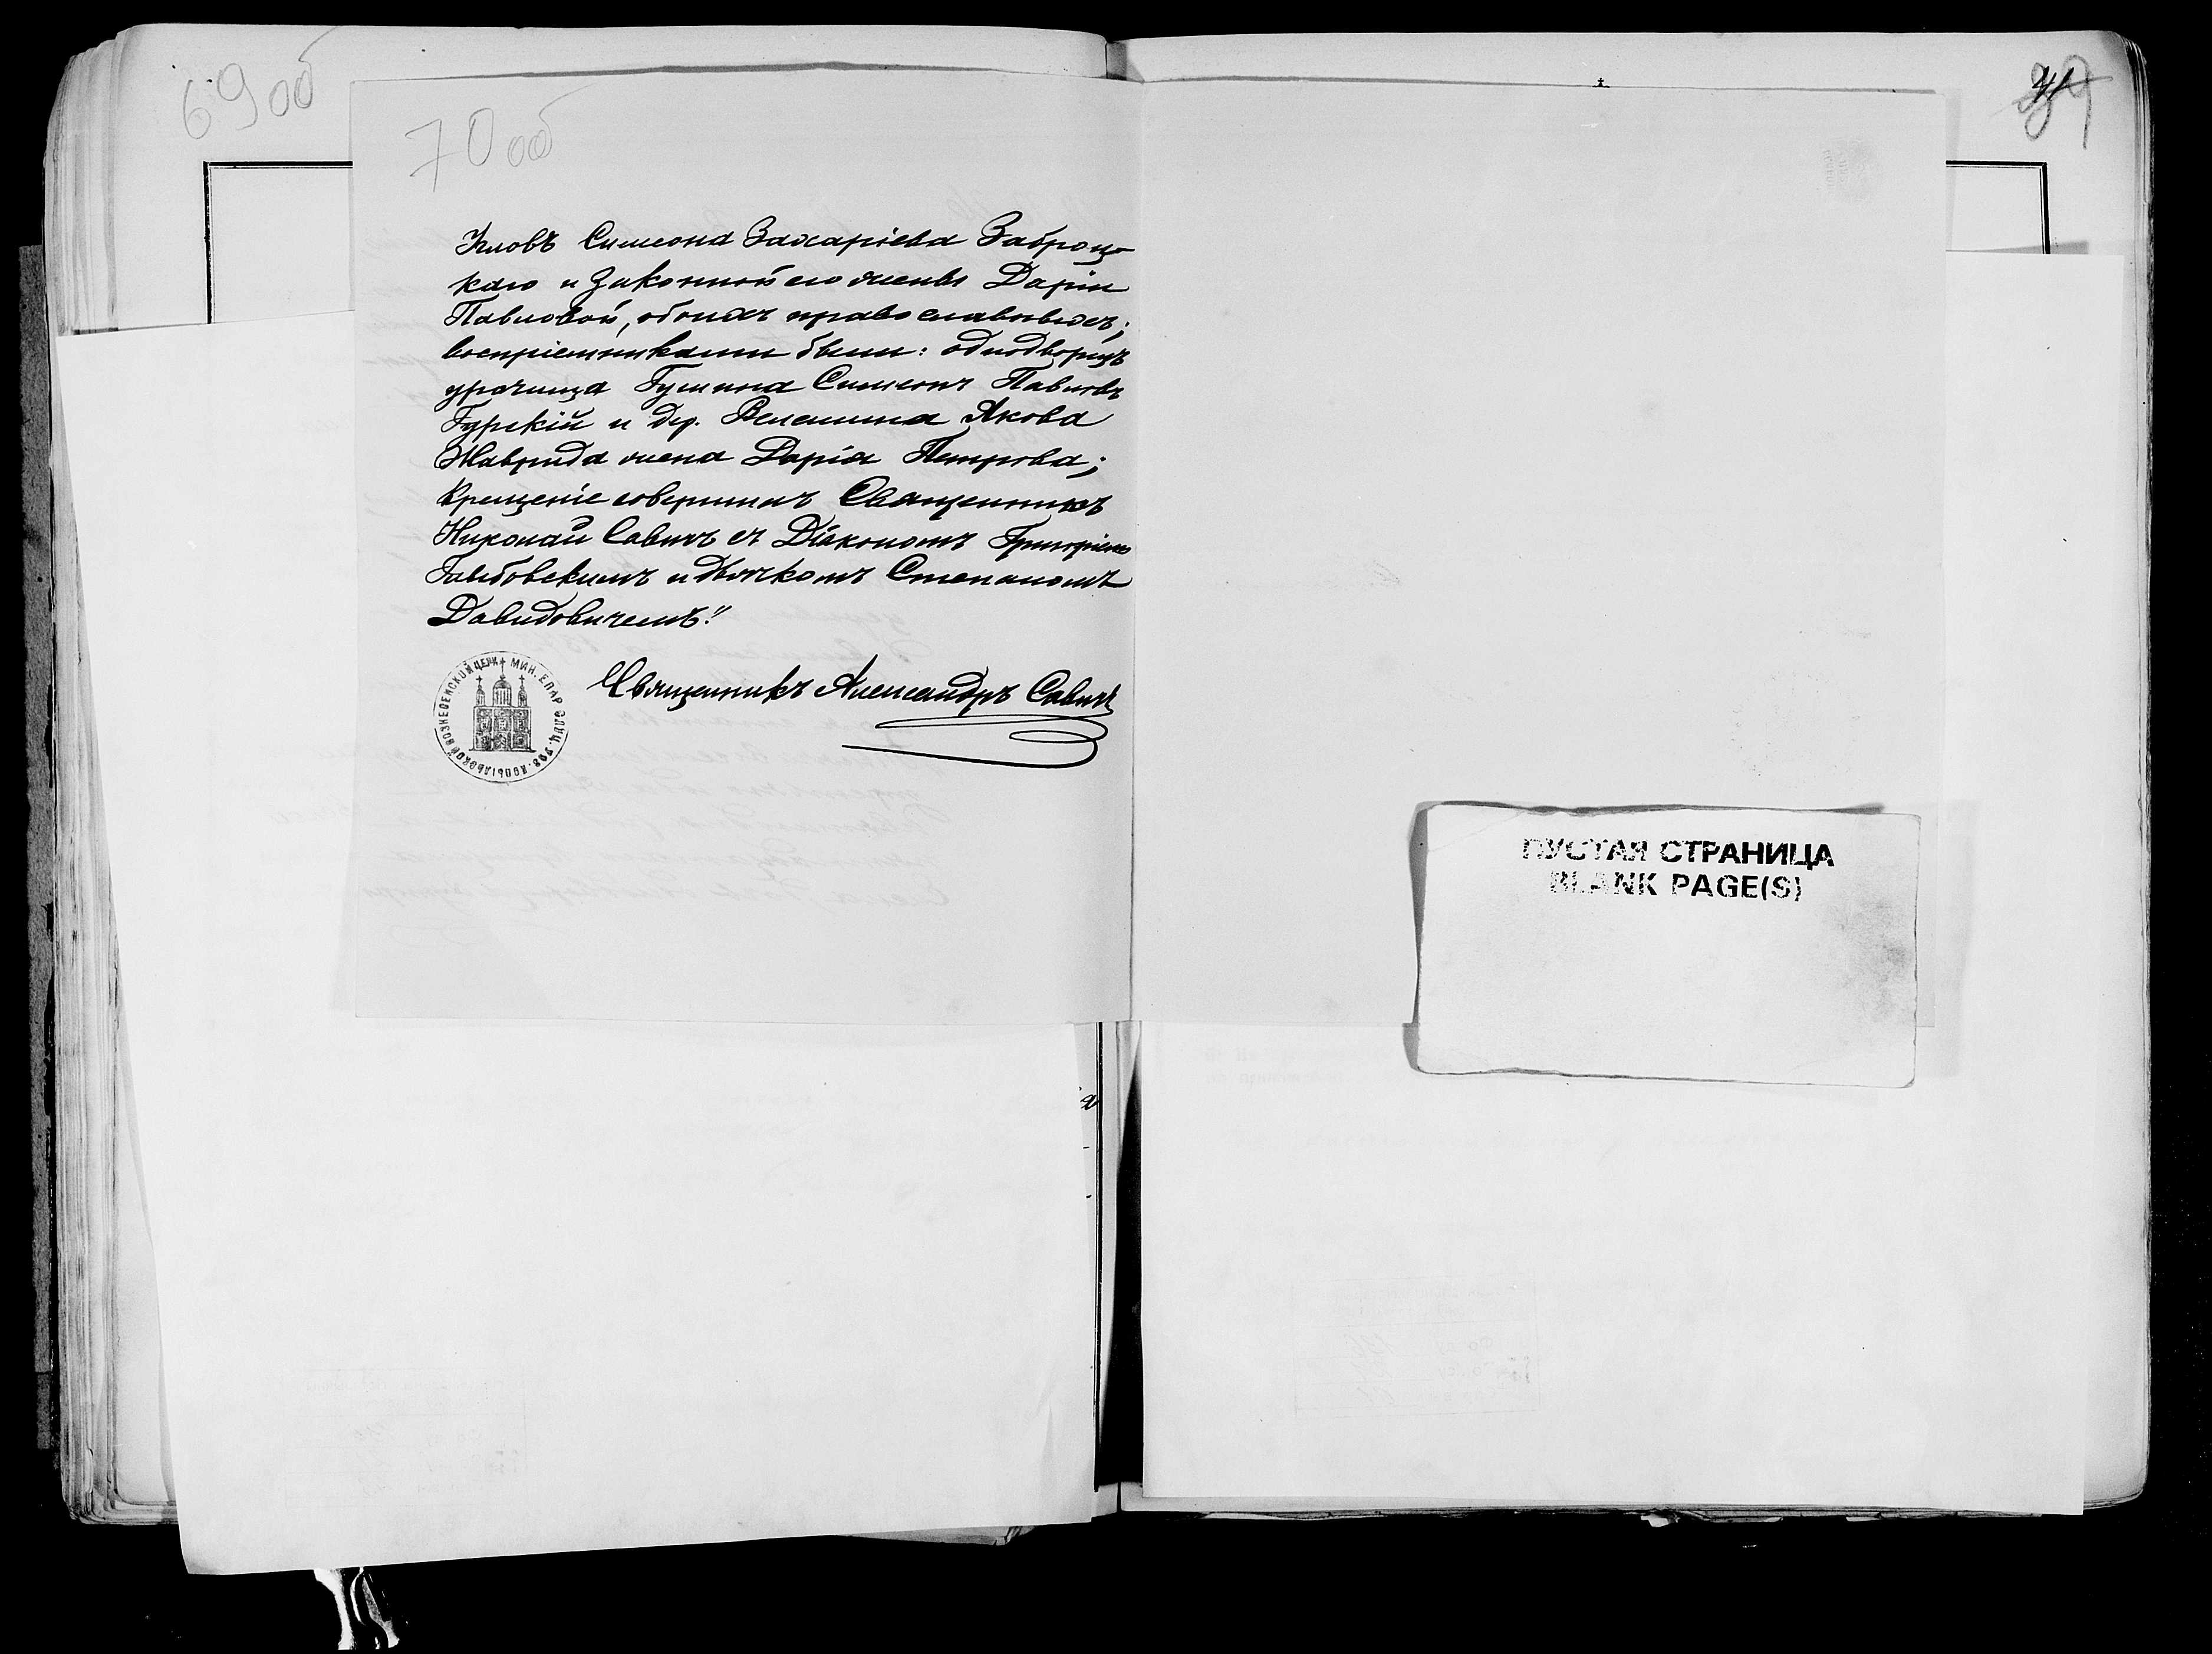 69 об
70 об
Кловъ Симеона Захаріева Заброц-
каго и законной его жены Даріи
Павловой, обоихъ православныхъ;
воспріемниками были: однодворцъ
урочища Гумина Симеонъ Павловъ
Гурскій и дер. Велешина Якова
Жаврида жена Дарія Петрова;
крещеніе совершилъ Священникъ
Николай Савичъ съ Діакономъ Григоріемъ
и дьячкомъ Степаномъ
Давидовичемъ."
Священникъ Александръ Савичъ
МИН. ЕПАР. СЛУЦ. УѢЗ. КОПЫЛЬСКОЙ ВОЗНЕСЕНСКОЙ ЦЕРК.
71
ПУСТАЯ СТРАНИЦА
BLANK PAGE(S)